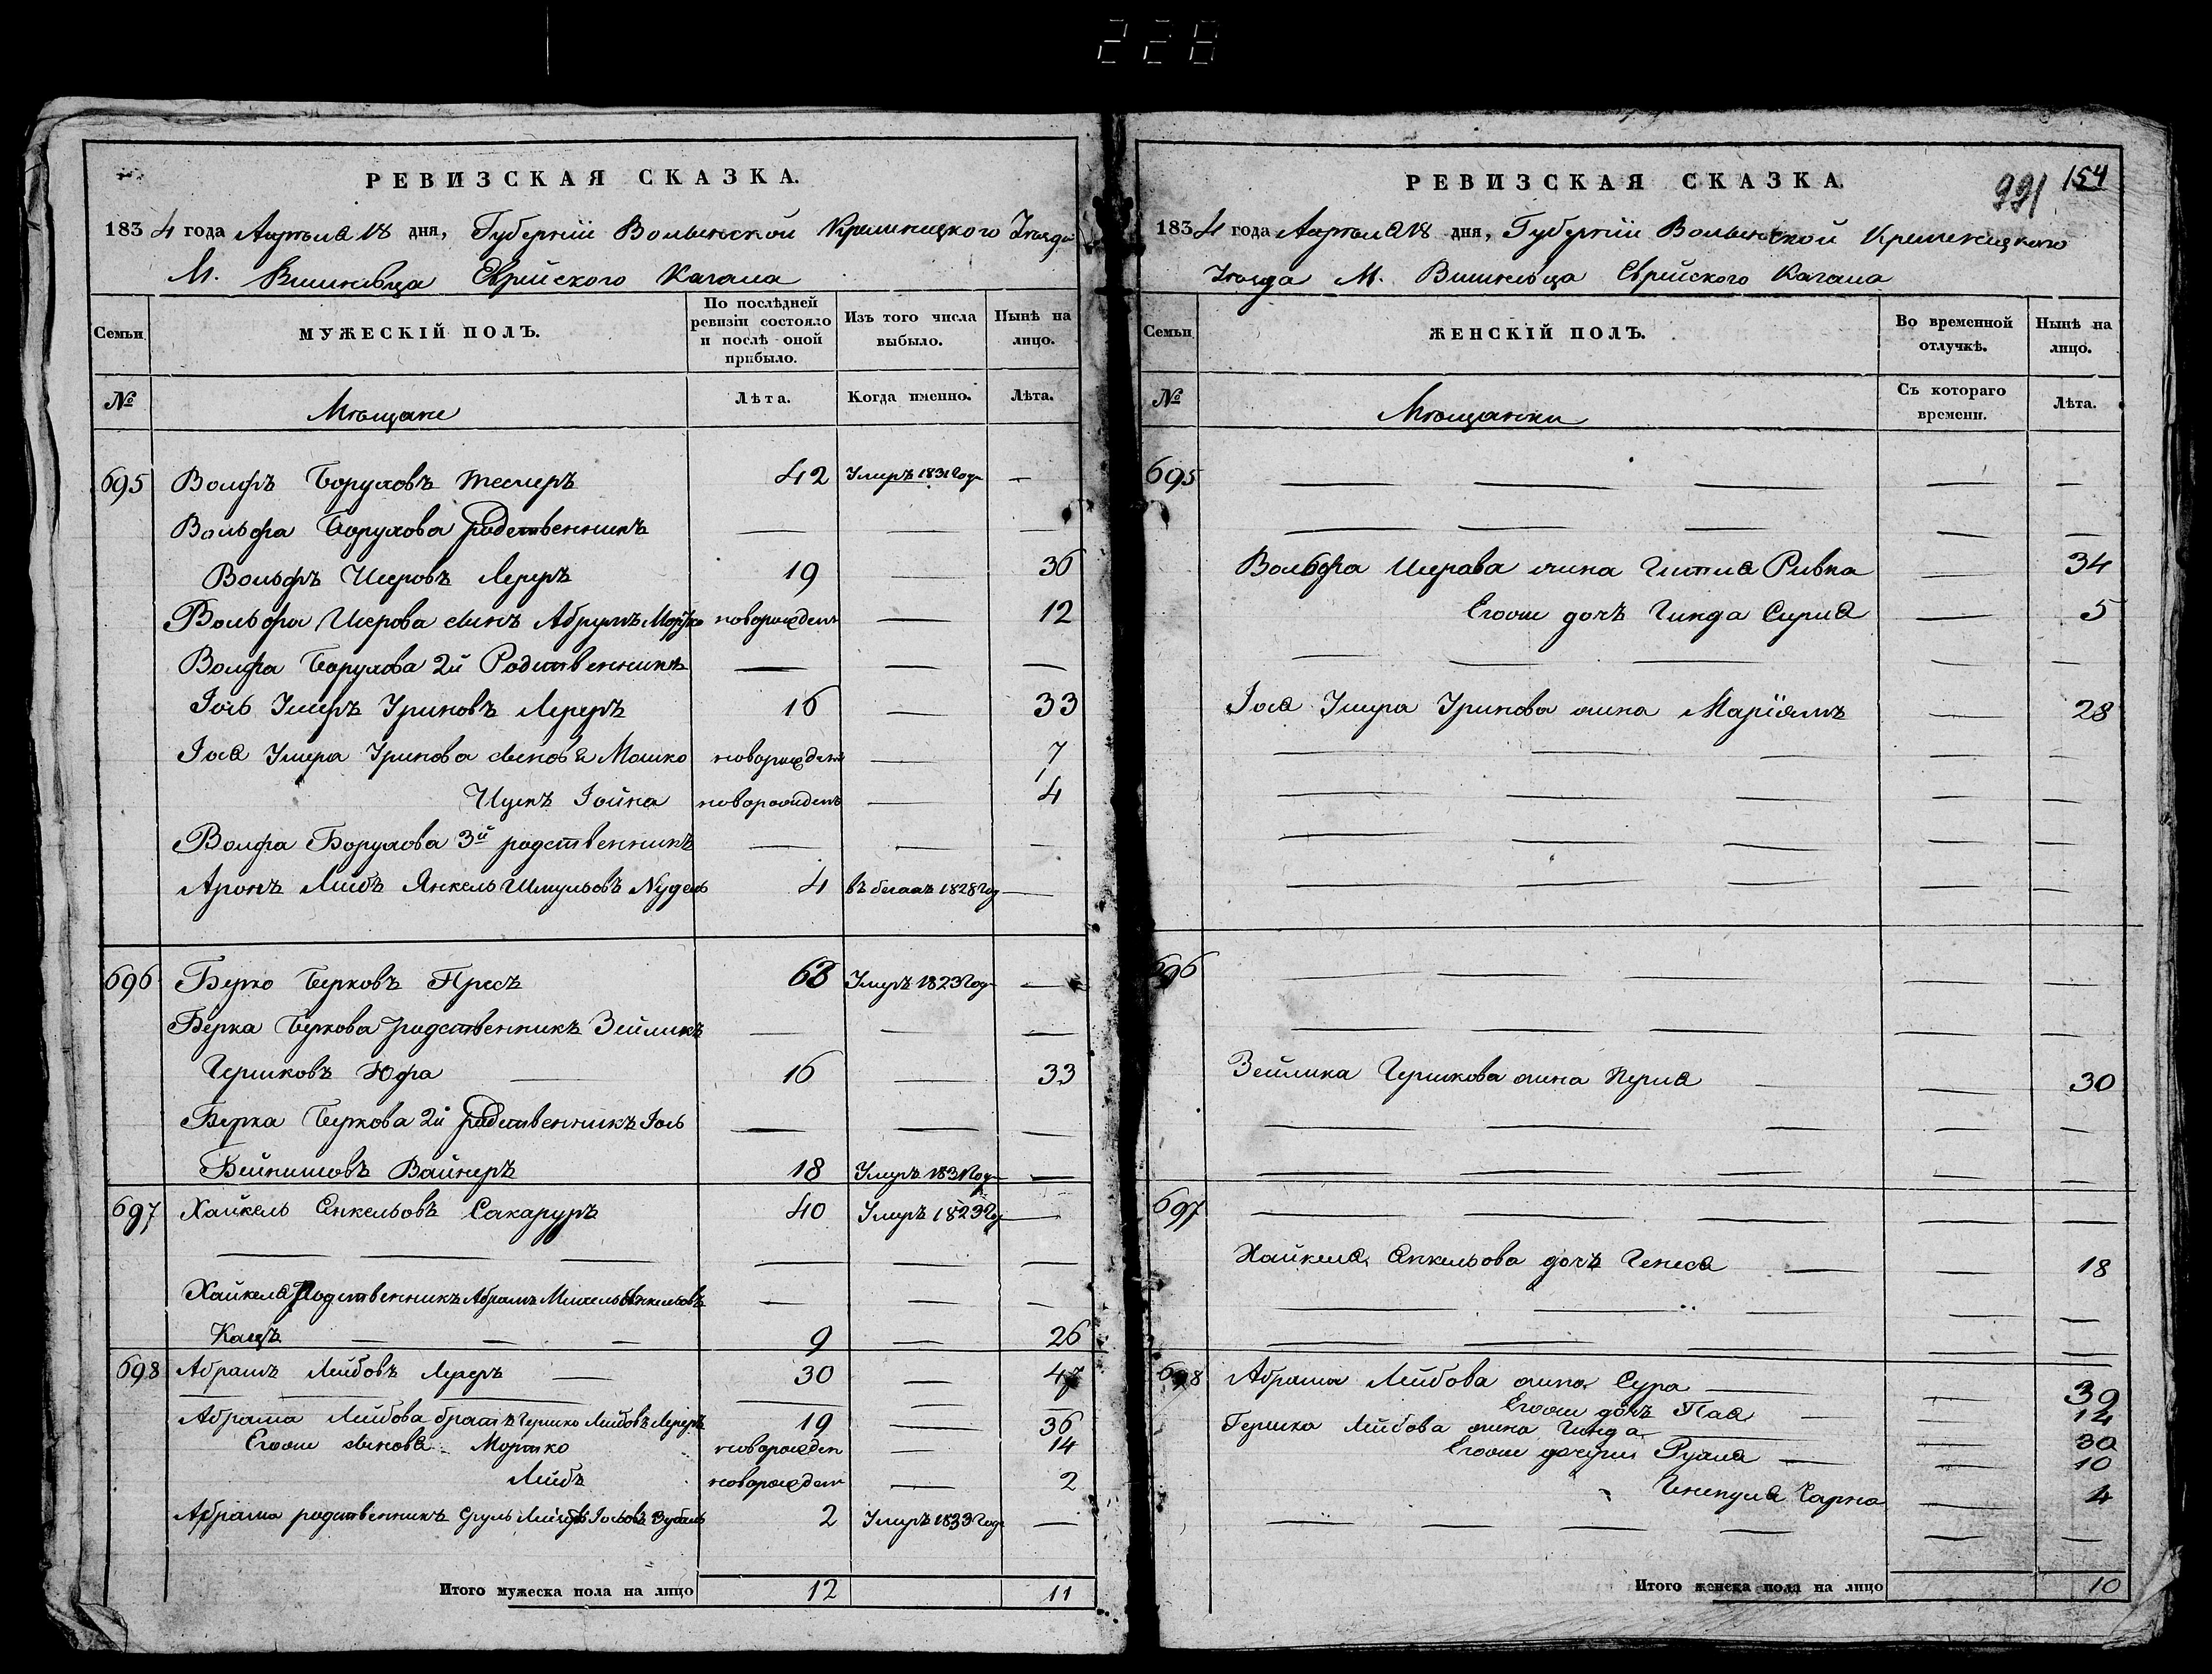 228
РЕВИЗСКАЯ СКАЗКА.
1834 года Апреля 18 дня, Губернiи Волынской Кременицкого Уезда
М. Вишневца Еврейского Кагала
Семьи
МУЖЕСКIЙ ПОЛЪ.
По послѣдней ревизiи состояло и послѣ оной прибыло.
Изъ того числа выбыло.
Нынѣ на лицо.
№
Мѣщане
Лѣта.
Когда именно.
Лѣта.
695 Волфъ Боруховъ Теслеръ 42 Умеръ 1831 Года —
Вольфа Борухова родственникъ — — —
Вольфъ Шеровъ Лереръ 19 — 36
Вольфа Шерова сынъ Абрумъ Мошко новорожденъ — 12
Волфа Борухова 2й Родственникъ — — —
Iось Умеръ Уриновъ Лереръ 16 — 33
Iося Умера Уринова сыновя Мошко новорожденъ — 7
Ицекъ Iойна новорожденъ — 4
Волфа Борухова 3й родственникъ — — —
Аронъ Лейбъ Янкель Шмульовъ Nудель 4 въ бегахъ 1828 Год —
696 Берко Берковъ Пресъ 63 Умеръ 1823 Года —
Берка Беркова родственникъ Зейликъ — — —
Гершковъ Юфа 16 — 33
Берка Беркова 2й родственникъ Iось — — —
Бейнишовъ Вайнеръ 18 Умеръ 1831 Года —
697 Хайкель Енкельовъ Сакаруръ 40 Умеръ 1823 Го —
— — — — — —
Хайкеля Родственникъ Абрамъ Михель Янкельовъ — — —
Кацъ — — — 9 — 26
698 Абрамъ Лейбовъ Лереръ — 30 — 47
Абрама Лейбова братъ Гершко Лейбовъ Лереръ 19 — 36
Егоже сыновя Мортко новорожден — 14
Лейбъ новорожден — 2
Абрама родственникъ Сруль Лейбъ Iосьовъ Зубаль 2 Умеръ 1833 Года —
Итого мужеска пола на лицо 12 11
РЕВИЗСКАЯ СКАЗКА.
991 154
1834 года Апреля 18 дня, Губернiи Волынской Кременицкого
Уезда М. Вишневца Еврейского Кагала
Семьи
ЖЕНСКIЙ ПОЛЪ.
Во временной отлучкѣ.
Нынѣ на лицо.
№
Мѣщанки
Съ котораго времени.
Лѣта.
695 — — — — —
— — — — —
Вольфа Шерава жина Гитля Ривка — 34
Егоже дочъ Гинда Сирля — 5
— — — — —
Iося Умера Уринова жина Марiямъ — 28
— — — — —
— — — — —
— — — — —
— — — — —
696 — — — — —
— — — — —
Зейлика Гершкова жина Перля — — 30
— — — — —
— — — — —
697 — — — — —
Хайкеля Янкельова дочъ Генеся — — 18
— — — — —
— — — — —
698 Абрама Лейбова жина Сура — — 39
Егоже дочъ Пая — — 12
Гершка Лейбова жина Гинда — — 30
Егоже дочери Рухля — — 10
Генендля Чарна — 4
— — — — — —
Итого женска пола на лицо 10